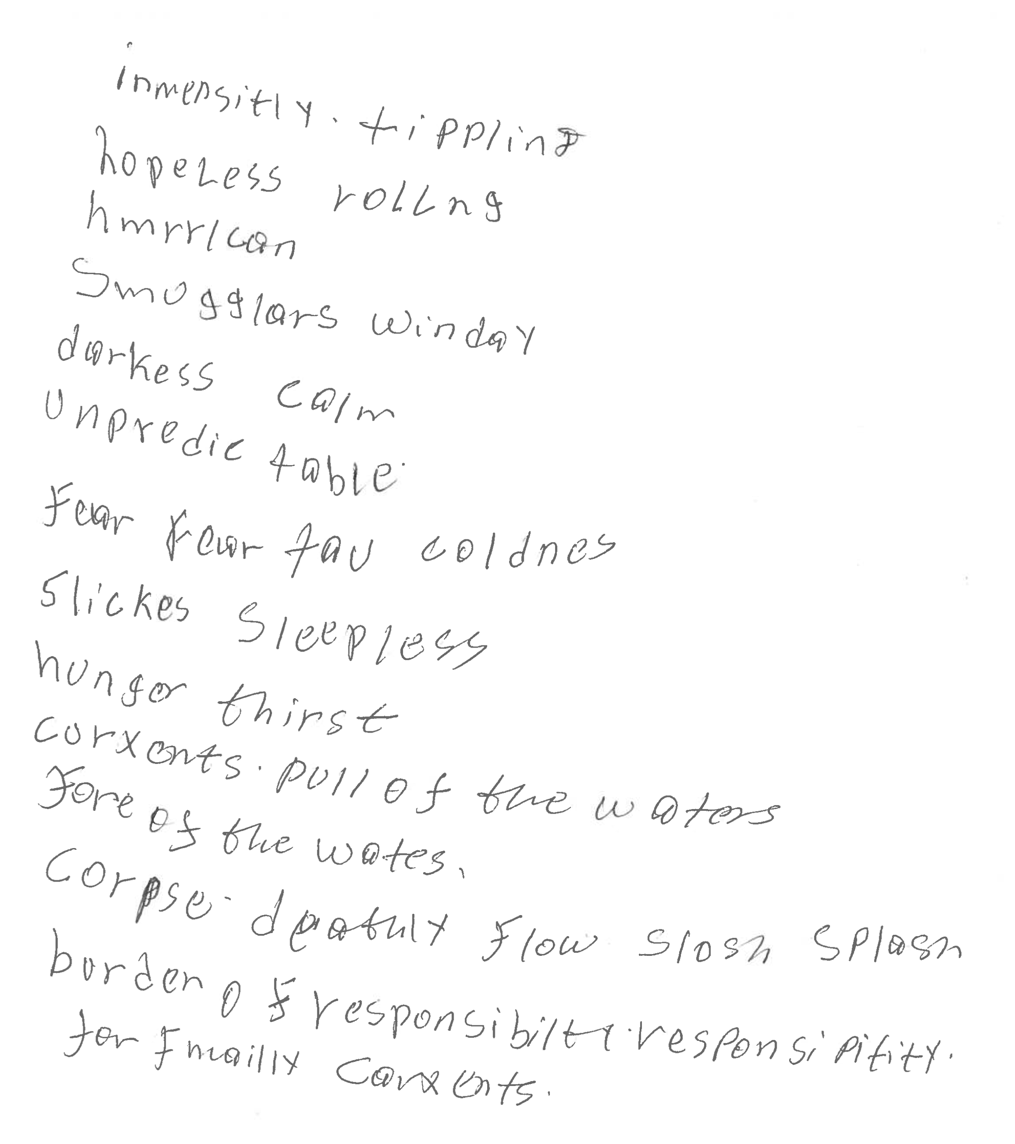 inmensitly. tippling
hopeless rollng
hmrrican
Smugglars winday
darkess calm
Unpredic table
Fear Fear fau coldnes
Slickes Sleepless
hungor thirst
corxents. pull of the waters
Fore of the wates.
Corpse. deathly Flow slosh Splash
burden of responsibilty responsipifity.
for Fmailly Corxents.